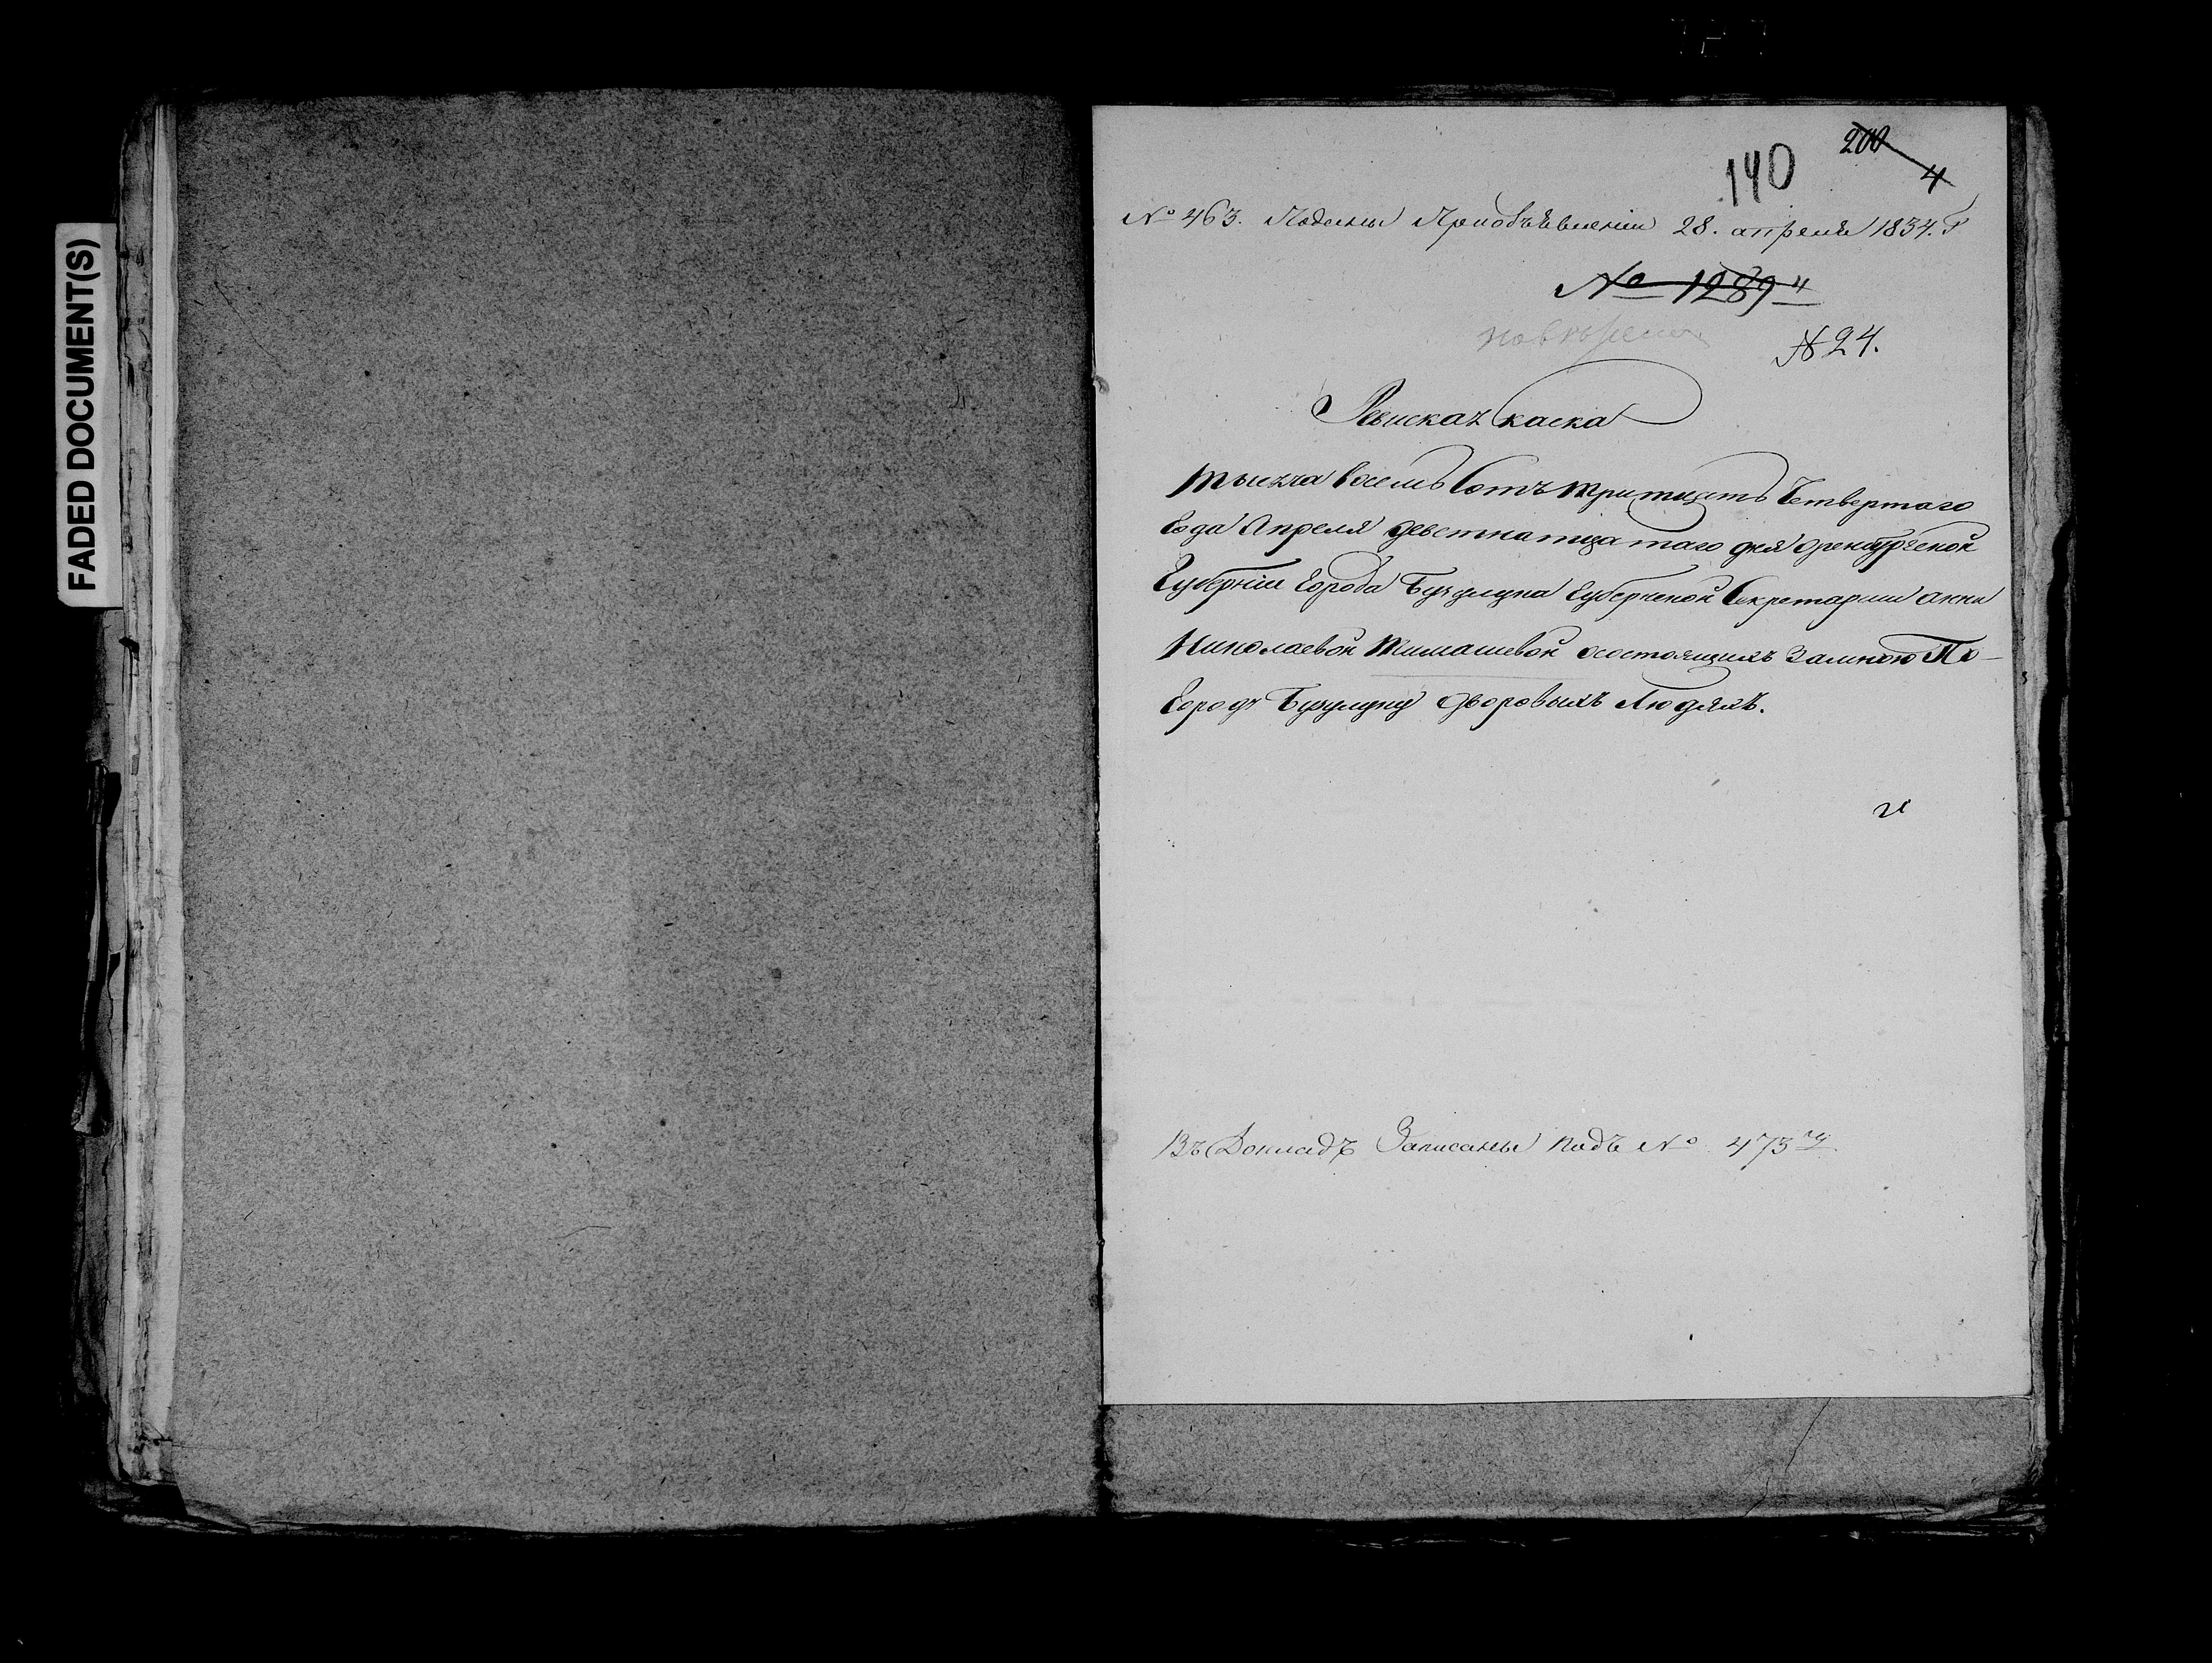 FADED DOCUMENT(S)
200
4
140
№ 463. Поданы Приобъявленіи 28. апреля 1834. г
№ 1289
№ 24.
Ревискаz каска
тысеча восемь Сотъ тритцать Четвертаго
Года Апреля Деветнатцатаго дня Оренбургской
Губерніи Города Бузулука Губернской Секретарши Анны
Николаевой Тимашевой осостоящихъ Замною По
Городу Бузулуку дворовыхъ Людяхъ.
Въ Докладъ Записаны подъ № 473